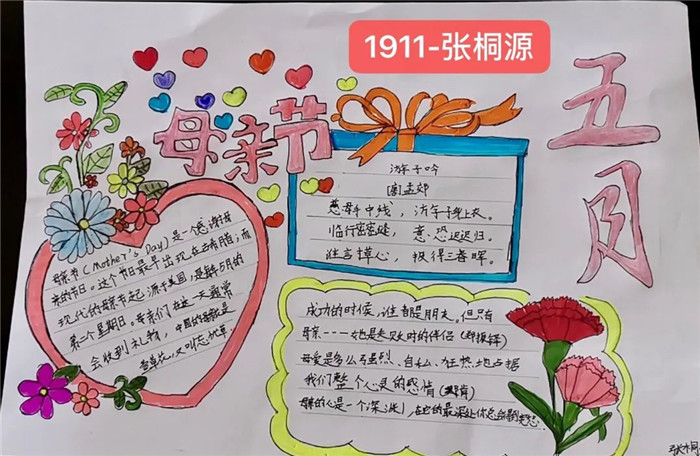 1911-张桐源
五月
母亲节
游子吟
[唐]孟郊
慈母手中线，游子身上衣。
临行密密缝，意恐迟迟归。
谁言寸草心，报得三春晖。
母亲节(Mother's Day)是一个感谢母
亲的节日。这个节日最早出现在古希腊；而
现代的母亲节起源于美国，是每年5月的
第二个星期日。母亲们在这一天通常
会收到礼物，中国的母亲花是
萱草花，又叫忘忧草。
成功的时候，谁都是朋友。但只有
母亲——她是失败时的伴侣
母爱是多么强烈、自私、狂热地占据
我们整个心灵的感情
母亲的心是一个深渊，在它的最深处你总会得到宽恕
张桐